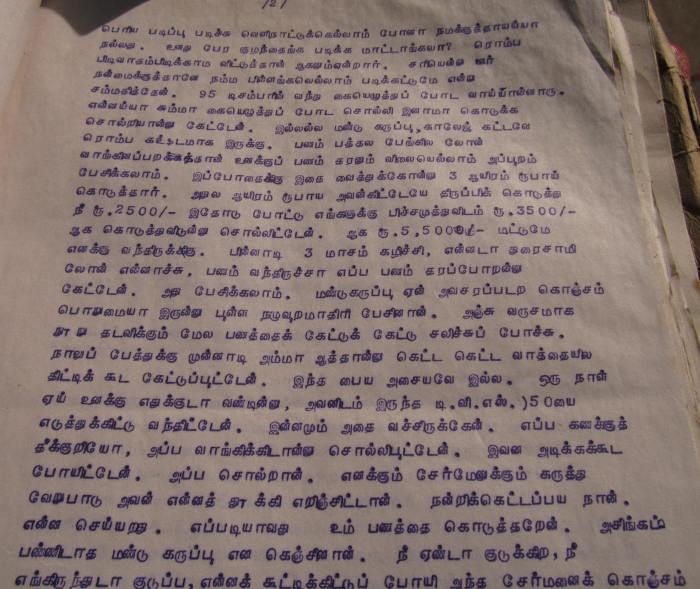 /2/
பெரிய படிப்பு படிச்சு வெளிநாட்டுக்கெல்லாம் போனா நமக்குத்தாயல்யா
நல்லது. உனது பேர குழந்தைங்க படிக்க மாட்டாங்களா? ரொம்ப
பிடிவாதம்பிடிக்காம விட்டுத்தான் ஆகனும்என்றார். சரியென்னு ஊர்
நன்மைக்குத்தானே நம்ம பிள்ளங்கலெல்லாம் படிக்கட்டுமே என்னு
சம்மதித்தேன். 95 டிசம்பரில் வந்து கையெழுத்துப் போட வாய்யான்னாரு.
என்னய்யா சும்மா கையெழுத்துப் போட சொல்லி இனாமா கொடுக்க
சொல்றியான்னு கேட்டேன். இல்லல்ல மண்டு கருப்பு,காலேஜ் கட்டவே
ரொம்ப கஷ்டமாக இருக்கு. பணம் பத்தல பேங்கில லோன்
வாங்கினப்பறக்கத்தான் உனக்குப் பணம் தரனும் விலையெல்லாம் அப்புறம்
பேசிக்கலாம். இப்போதைக்கு இதை வைத்துக்கோன்னு 3 ஆயிரம் ரூபாய்
கொடுத்தார். அதுல ஆயிரம் ரூபாய அவன்கிட்டேயே திருப்பிக் கொடுத்து
நீ ரூ.2500/- இதோடு போட்டு எங்களுக்கு பிச்சமுத்துவிடம் ரூ.3500/-
ஆக கொடுத்துவிடுன்னு சொல்லிட்டேன். ஆக ரூ.5,500/- மட்டுமே
எனக்கு வந்திருக்கிகு. பின்னாடி 3 மாசம் கழிச்சி, என்னடா துரைசாமி
லோன் என்னாச்சு, பணம் வந்திருச்சா எப்ப பணம் தரப்போறன்னு
கேட்டேன். அது பேசிக்கலாம். மண்டுகருப்பு ஏன் அவசரப்படற கொஞ்சம்
பொறுமையா இருன்னு புள்ள நழுவுறமாதிரி பேசினான். அஞ்சு வருசமாக
நூறு தடவிக்கும் மேல பணத்தைக் கேட்டுக் கேட்டு சலிச்சுப் போச்சு.
நாலுப் பேத்துக்கு முன்னாடி அம்மா ஆத்தான்னு கெட்ட கெட்ட வாத்தையில
திட்டிக் கூட கேட்டுப்பூட்டேன். இந்த பைய அசையவே இல்ல. ஒரு நாள்
ஏய் உனக்கு எதுக்குடா வண்டின்னு, அவனிடம் இருந்த டி.வி.எஸ்.)50யை
எடுத்துக்கிட்டு வந்திட்டேன். இன்னமும் அதை வச்சிருக்கேன். எப்ப கணக்குத்
தீக்குறியோ, அப்ப வாங்கிக்கிடான்னு சொல்லிபுட்டேன். இவன அடிக்கக்கூட
போயிட்டேன். அப்ப சொல்றான். எனக்கும் சேர்மேனுக்கும் கருத்து
வேறுபாடு அவன் என்னத் தூக்கி எறிஞ்சிட்டான். நன்றிக்கெட்டப்பய நான்.
என்ன செய்யறது. எப்படியாவது உம் பணத்தை கொடுத்தறேன். அசிங்கம்
பண்ணிடாத மண்டு கருப்பு என கெஞ்சினான். நீ ஏண்டா குடுக்கிற, நீ
எங்கிருந்துடா குடுப்ப,என்னக் கூட்டிக்கிட்டுப் போயி அந்த சேர்மனைக் கொஞ்சம்